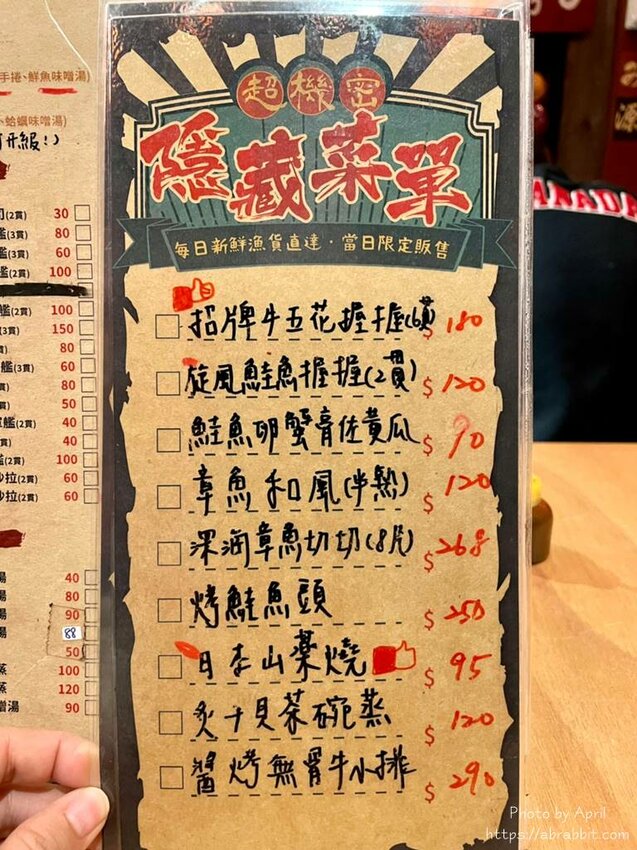 手捲、鮮魚味噌湯)
、蛤蠣味噌湯)
超機密
隱藏菜單
每日新鮮漁貨直達・當日限定販售
招牌牛五花握握(6貫) $180
旋風鮭魚握握(2貫) $120
鮭魚卵蟹膏佐黃瓜 $90
章魚和風(半熟) $120
深海章魚切切(8片) $268
烤鮭魚頭 $250
日本山藥燒 $95
炙干貝茶碗蒸 $120
醬烤無骨牛小排 $290
(2貫) 30
(3貫) 80
(3貫) 60
(2貫) 100
(2貫) 100
(3貫) 150
80
(3貫) 60
(2貫) 80
50
(2貫) 40
(3貫) 40
(2貫) 100
沙拉(2貫) 60
沙拉(2貫) 60
湯 40
湯 80
湯 90
湯 88
50
蒸 100
蒸 120
噌湯 90
CANADA
源
Photo by April
https://abrabbit.com